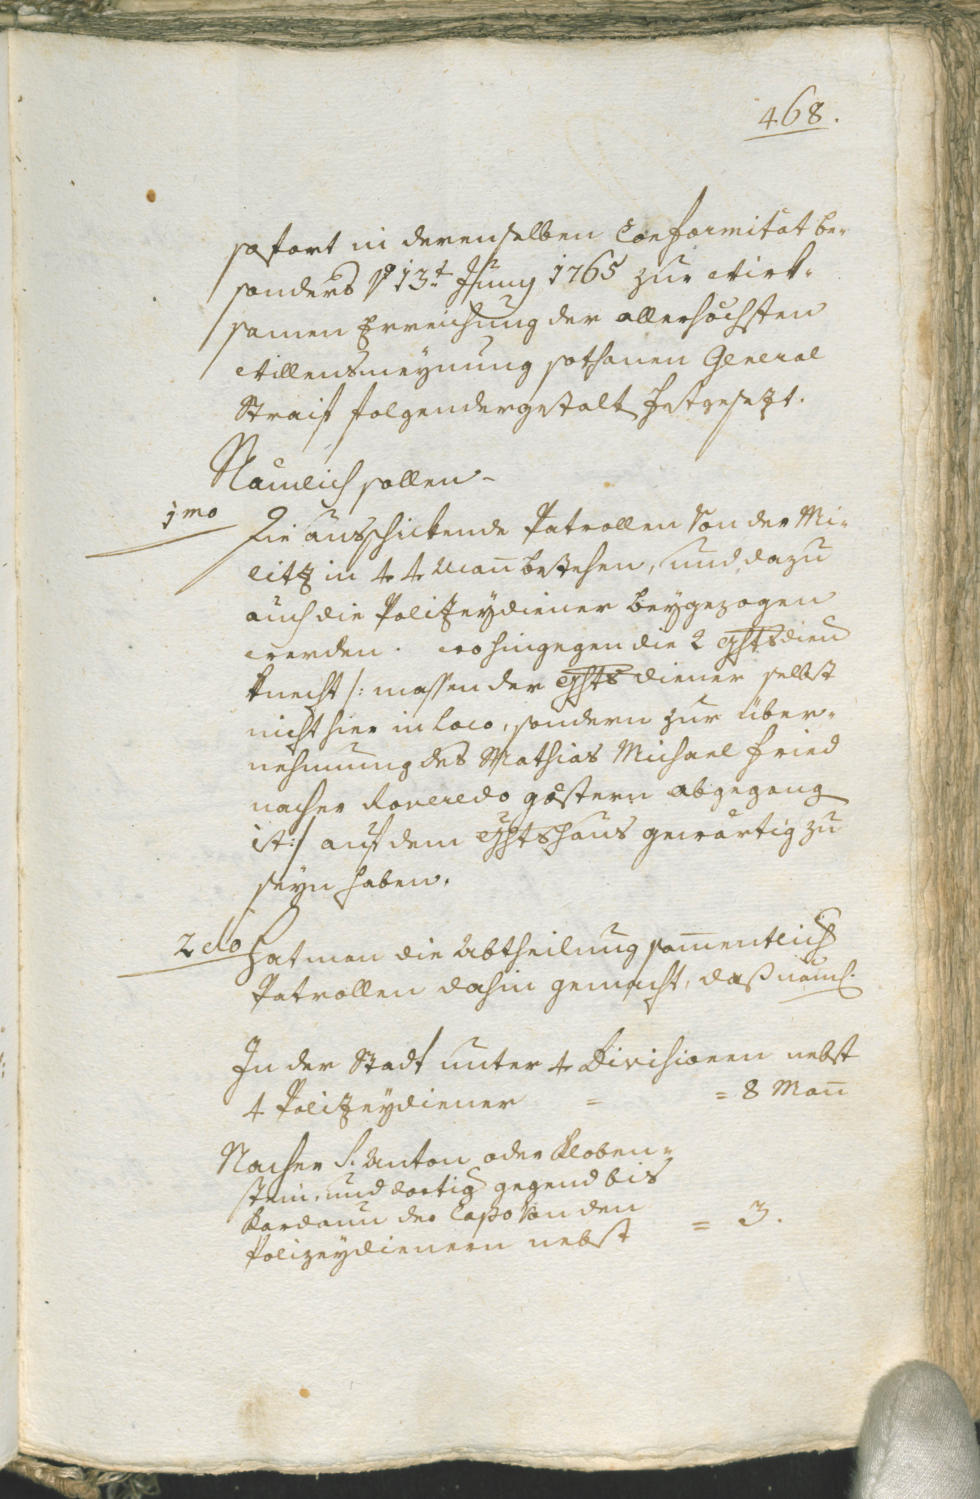 468.
sofort in derenselben Conformität be-
sonders p 13.t Juny 1765 zur wirk-
samen Erreichung der allerhöchsten
Willensmeynung sothanen General
Straif folgendergestalt festgesezt.
Namlich sollen
1mo Die ausschickende Patrollen von der Mi-
litz in 4. 4. Mann bestehen, und dazu
auch die Polizeydiener beygezogen
werden. wohingegen die 2 ghtsdien
knecht /: massen der ghtsdiener selbst
nicht hier in loco, sondern zur über-
nehmung des Mathias Michael Fried
nacher Roveredo gestern abgegang
ist :/ auf dem ghtshaus gewärtig zu
seyn haben.
2do Hat man die Abtheilung sammentlich
Patrollen dahin gemacht, daß näml.
In der Stadt unter 4 Divisionen nebst
4 Polizeydiener = = 8 Mann
Nacher S. Anton oder Kloben-
stein, und dortig gegend bis
Kardaun der Capo von den
Polizeydienern nebst = 3.